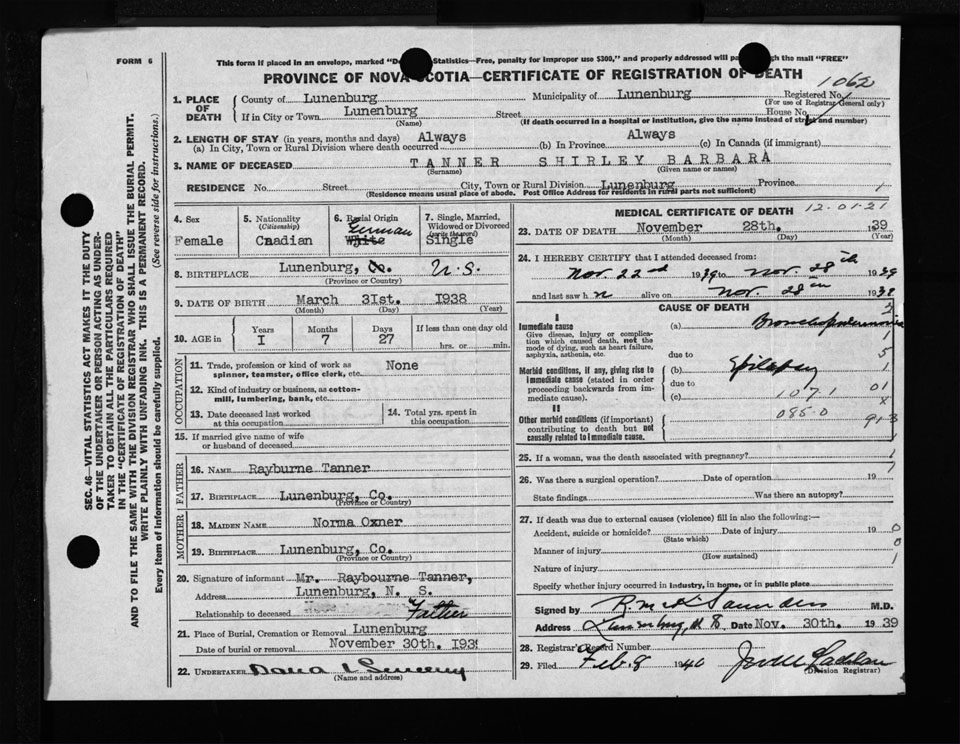 FORM 6
This form if placed in an envelope, marked "De Statistics—Free, penalty for improper use $300," and properly addressed will pa through the mail "FREE"
PROVINCE OF NOVA SCOTIA—CERTIFICATE OF REGISTRATION OF DEATH
1062
SEC. 46—VITAL STATISTICS ACT MAKES IT THE DUTY
OF THE UNDERTAKER OR PERSON ACTING AS UNDER-
TAKER TO OBTAIN ALL THE PARTICULARS REQUIRED
IN THE "CERTIFICATE OF REGISTRATION OF DEATH"
AND TO FILE THE SAME WITH THE DIVISION REGISTRAR WHO SHALL ISSUE THE BURIAL PERMIT.
WRITE PLAINLY WITH UNFADING INK. THIS IS A PERMANENT RECORD.
Every item of information should be carefully supplied. (See reverse side for instructions.)
1. PLACE OF DEATH
County of Lunenburg Municipality of Lunenburg Registered No.
(For use of Registrar General only)
If in City or Town Lunenburg Street House No.
(Name) (If death occurred in a hospital or institution, give the name instead of street and number)
2. LENGTH OF STAY (in years, months and days) Always Always
(a) In City, Town or Rural Division where death occurred (b) In Province (c) In Canada (if immigrant)
3. NAME OF DECEASED TANNER SHIRLEY BARBARA
(Surname) (Given name or names)
RESIDENCE No. Street City, Town or Rural Division Lunenburg Province
(Residence means usual place of abode. Post Office Address for residents in rural parts not sufficient)
4. Sex
Female
5. Nationality
(Citizenship)
Cnadian
6. Racial Origin
German
White
7. Single, Married,
Widowed or Divorced
(write the word)
Single
8. BIRTHPLACE Lunenburg, Co. N.S.
(Province or Country)
9. DATE OF BIRTH March 31st. 1938
(Month) (Day) (Year)
10. AGE in
Years Months Days If less than one day old
I 7 27 hrs. or min.
OCCUPATION
11. Trade, profession or kind of work as None
spinner, teamster, office clerk, etc.
12. Kind of industry or business, as cotton-
mill, lumbering, bank, etc.
13. Date deceased last worked
at this occupation
14. Total yrs. spent in
this occupation
15. If married give name of wife
or husband of deceased
FATHER
16. NAME Rayburne Tanner
17. BIRTHPLACE Lunenburg, Co.
(Province or Country)
MOTHER
18. MAIDEN NAME Norma Oxner
19. BIRTHPLACE Lunenburg, Co.
(Province or Country)
20. Signature of informant Mr. Raybourne Tanner,
Address Lunenburg, N. S.
Relationship to deceased Father
21. Place of Burial, Cremation or Removal Lunenburg
Date of burial or removal November 30th. 1939
22. UNDERTAKER Dana L Sweeny
(Name and address)
MEDICAL CERTIFICATE OF DEATH 12-01-21
23. DATE OF DEATH November 28th. 1939
(Month) (Day) (Year)
24. I HEREBY CERTIFY that I attended deceased from:
Nov. 22nd 1939 to Nov. 28th 1939
and last saw h alive on Nov. 28th 1939
CAUSE OF DEATH
I
Immediate cause
Give disease, injury or complica-
tion which caused death, not the
mode of dying, such as heart failure,
asphyxia, asthenia, etc.
(a) Bronchopneumonia
due to
Morbid conditions, if any, giving rise to
immediate cause (stated in order
proceeding backwards from im-
mediate cause).
(b) Epilepsy
due to
(c) 107.1
II
Other morbid conditions (if important)
contributing to death but not
causally related to immediate cause.
085.0
91-3
25. If a woman, was the death associated with pregnancy?
26. Was there a surgical operation? Date of operation 19
State findings Was there an autopsy?
27. If death was due to external causes (violence) fill in also the following:—
Accident, suicide or homicide? Date of injury 19
(State which)
Manner of injury
(How sustained)
Nature of injury
Specify whether injury occurred in industry, in home, or in public place
Signed by Saunders M.D.
Address Lunenburg, N S Date Nov. 30th. 1939
28. Registrar's Record Number
29. Filed Feb 8 1940
(Division Registrar)